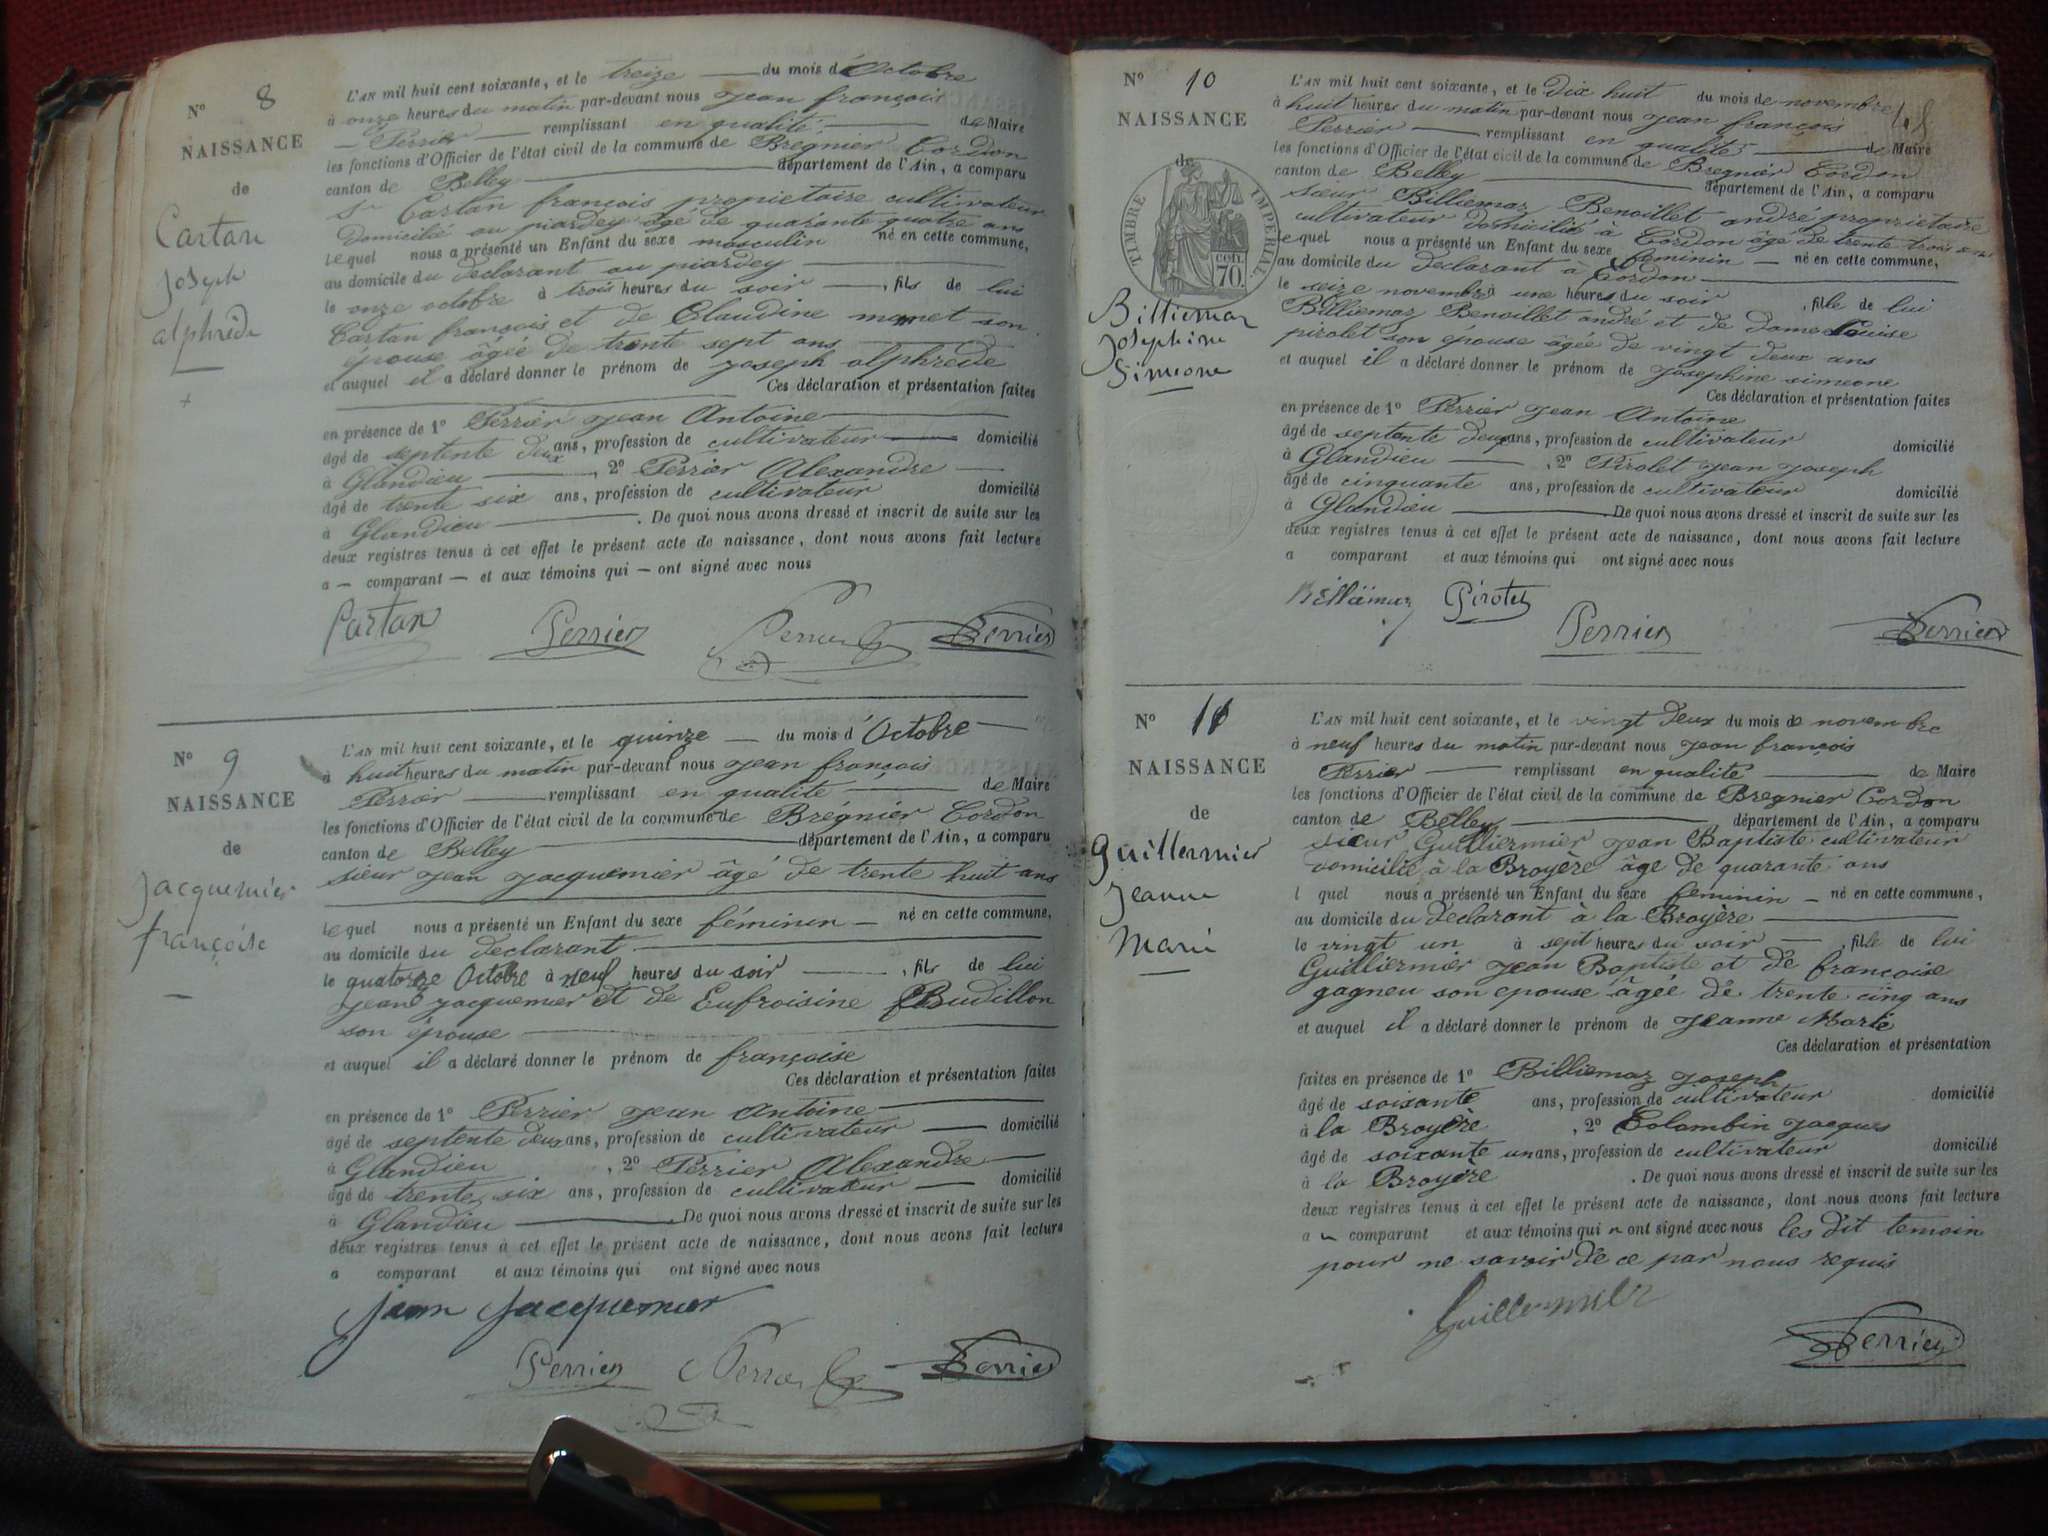 N° 8
NAISSANCE
de
Cartan
Joseph
alphrède
L'AN mil huit cent soixante, et le treize du mois d'Octobre
à onze heures du matin par-devant nous Jean françois
Perrier remplissant en qualité de Maire
les fonctions d'Officier de l'état civil de la commune de Bregnier Cordon
canton de Belley département de l'Ain, a comparu
Sr Cartan françois propriétaire cultivateur
domicilié au piardey âgé de quarante quatre ans
lequel nous a présenté un Enfant du sexe masculin né en cette commune,
au domicile du declarant au piardey
le onze octobre à trois heures du soir, fils de lui
Cartan françois et de Claudine monet son
épouse âgée de trente sept ans
et auquel il a déclaré donner le prénom de Joseph alphrède
Ces déclaration et présentation faites
en présence de 1° Perrier Jean Antoine
âgé de septente deux ans, profession de cultivateur domicilié
à Glandieu, 2° Perrier Alexandre
âgé de trente six ans, profession de cultivateur domicilié
à Glandieu. De quoi nous avons dressé et inscrit de suite sur les
deux registres tenus à cet effet le présent acte de naissance, dont nous avons fait lecture
a — comparant — et aux témoins qui — ont signé avec nous
Cartan Perrier Perrier Perrier
N° 9
NAISSANCE
de
Jacquemier
françoise
L'AN mil huit cent soixante, et le quinze du mois d'Octobre
à huit heures du matin par-devant nous Jean françois
Perrier remplissant en qualité de Maire
les fonctions d'Officier de l'état civil de la commune de Brégnier Cordon
canton de Belley département de l'Ain, a comparu
sieur Jean Jacquemier âgé de trente huit ans
lequel nous a présenté un Enfant du sexe féminin né en cette commune,
au domicile du declarant
le quatorze Octobre à neuf heures du soir, fils de lui
Jean Jacquemier et de Eufroisine Budillon
son épouse
et auquel il a déclaré donner le prénom de françoise
Ces déclaration et présentation faites
en présence de 1° Perrier Jean Antoine
âgé de septente deux ans, profession de cultivateur domicilié
à Glandieu, 2° Perrier Alexandre
âgé de trente six ans, profession de cultivateur domicilié
à Glandieu. De quoi nous avons dressé et inscrit de suite sur les
deux registres tenus à cet effet le présent acte de naissance, dont nous avons fait lecture
a comparant et aux témoins qui ont signé avec nous
Jean Jacquemier
Perrier Perrier Perrier
N° 10
NAISSANCE
de
TIMBRE IMPÉRIAL
70.
Billiemaz
Josephine
Simeone
L'AN mil huit cent soixante, et le dix huit du mois de novembre
à huit heures du matin par-devant nous Jean françois
Perrier remplissant en qualité de Maire
les fonctions d'Officier de l'état civil de la commune de Bregnier Cordon
canton de Belley département de l'Ain, a comparu
sieur Billiemaz Benoillet andré propriétaire
cultivateur domicilié à Cordon âgé de trente trois ans
lequel nous a présenté un Enfant du sexe féminin né en cette commune,
au domicile du declarant à Cordon
le seize novembre à une heures du soir, fille de lui
Billiemaz Benoillet andré et de dame Louise
pirolet son épouse âgée de vingt deux ans
et auquel il a déclaré donner le prénom de Josephine simeone
Ces déclaration et présentation faites
en présence de 1° Perrier Jean Antoine
âgé de septente deux ans, profession de cultivateur domicilié
à Glandieu, 2° Pirolet Jean Joseph
âgé de cinquante ans, profession de cultivateur domicilié
à Glandieu. De quoi nous avons dressé et inscrit de suite sur les
deux registres tenus à cet effet le présent acte de naissance, dont nous avons fait lecture
a comparant et aux témoins qui ont signé avec nous
Billiemaz Pirolet
Perrier Perrier
N° 11
NAISSANCE
de
Guillermier
Jeanne
Marie
L'AN mil huit cent soixante, et le vingt deux du mois de novembre
à neuf heures du matin par-devant nous Jean françois
Perrier remplissant en qualité de Maire
les fonctions d'Officier de l'état civil de la commune de Bregnier Cordon
canton de Belley département de l'Ain, a comparu
sieur Guilliermier Jean Baptiste cultivateur
domicilié à la Broyère âge de quarante ans
l quel nous a présenté un Enfant du sexe feminin né en cette commune,
au domicile du declarant à la Broyère
le vingt un à sept heures du soir, fille de lui
Guilliermier Jean Baptiste et de françoise
gagneu son epouse âgée de trente cinq ans
et auquel il a déclaré donner le prénom de Jeanne Marie
Ces déclaration et présentation
faites en présence de 1° Billiemaz Joseph
âgé de soisante ans, profession de cultivateur domicilié
à la Broyère, 2° Colombin Jacques
âgé de soixante un ans, profession de cultivateur domicilié
à la Broyère. De quoi nous avons dressé et inscrit de suite sur les
deux registres tenus à cet effet le présent acte de naissance, dont nous avons fait lecture
a comparant et aux témoins qui ont signé avec nous les dit temoin
pour ne savoir de ce par nous requis
Guillermier
Perrier